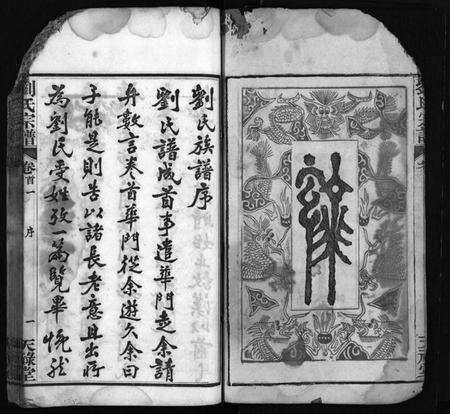 劉氏宗譜
劉氏族譜序
劉氏譜成首事遣華門走余請
弁數言卷首華門從余遊久余曰
子能是則告以諸長老意且出所
為劉氏受姓攷一篇覽畢恍然
劉氏宗譜 卷首一 序 一 天祿堂